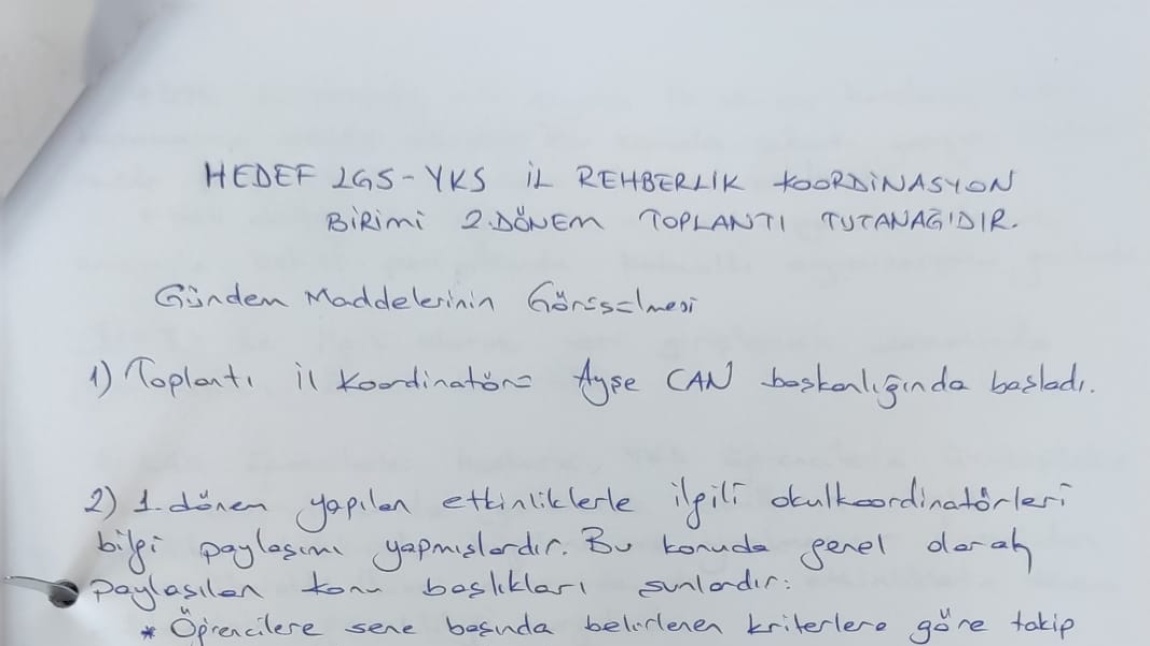 HEDEF LGS-YKS İL REHBERLİK KOORDİNASYON
BİRİMİ 2.DÖNEM TOPLANTI TUTANAĞIDIR.
Gündem Maddelerinin Görüşülmesi
1) Toplantı il koordinatörü Ayşe CAN başkanlığında başladı.
2) 1.dönem yapılan etkinliklerle ilgili okulkoordinatörleri
bilgi paylaşımı yapmışlardır. Bu konuda genel olarak
paylaşılan konu başlıkları şunlardır:
* Öğrencilere sene başında belirlenen kriterlere göre takip